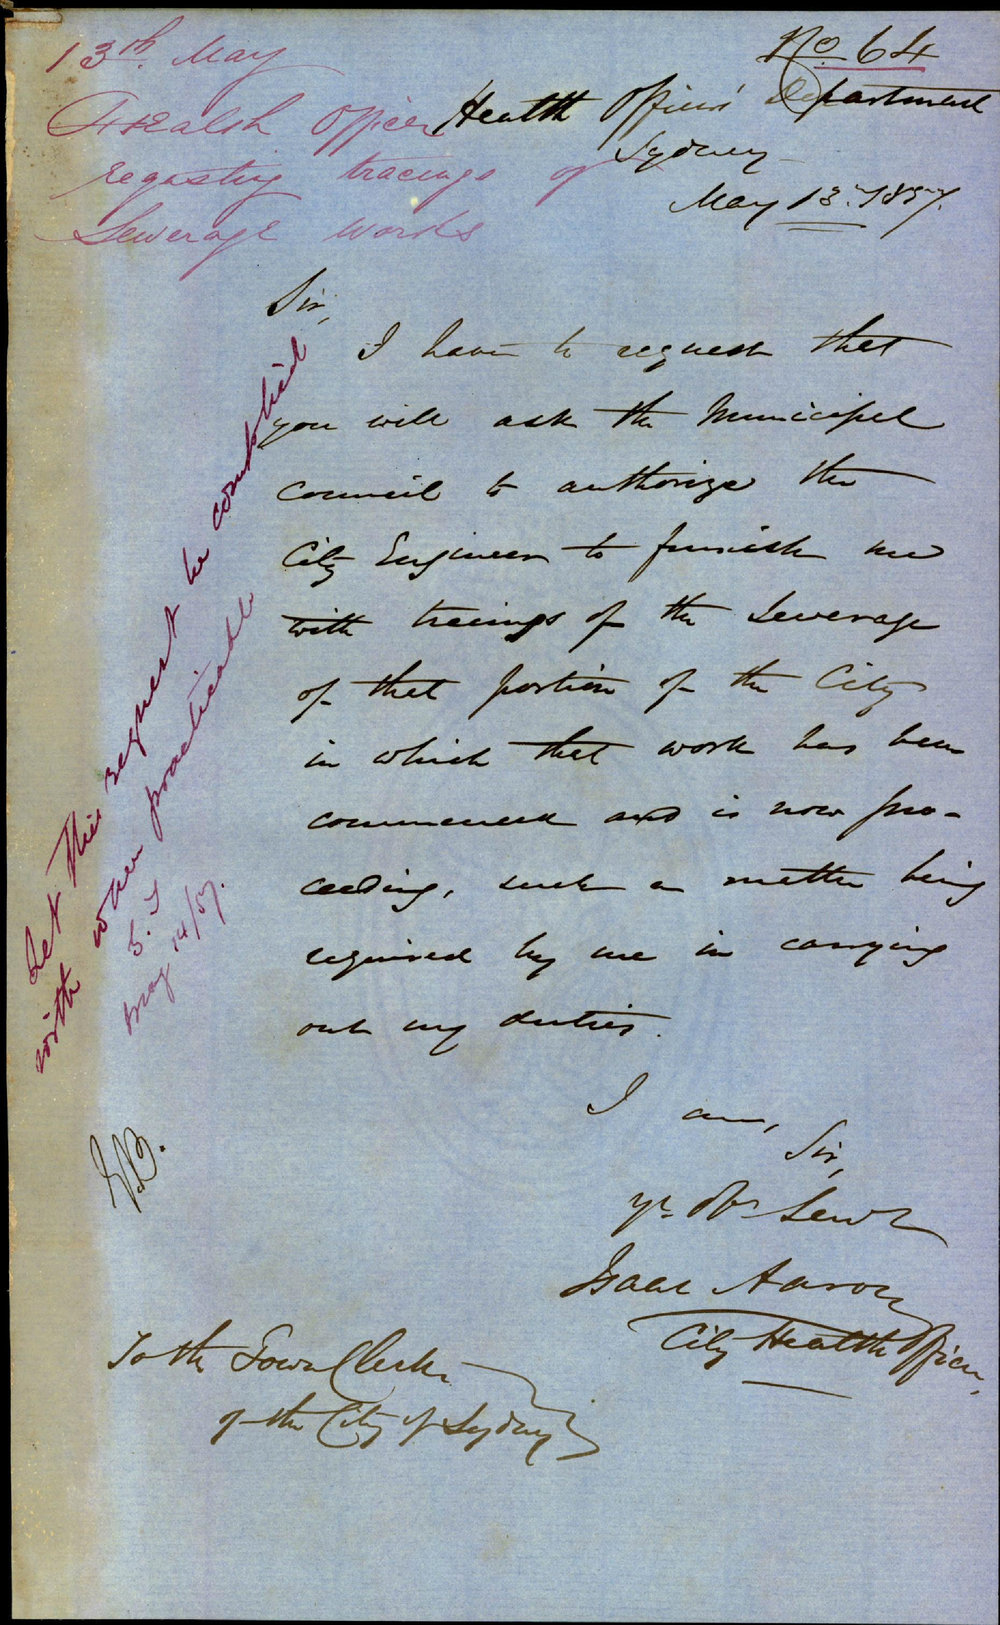 No. 64
13th. May
Health Officer
requesting tracings of
Sewerage Works
Health Officers' Department
Sydney
May 13th. 1857.
Sir,
I have to request that
you will ask the Municipal
Council to authorize the
City Engineer to furnish me
with tracings of the Sewerage
of that portion of the City
in which that work has been
commenced and is now pro-
ceeding, such a matter being
required by me in carrying
out my duties.
I am,
Sir,
Yr. Ob. Servt
Isaac Aaron
City Health Officer.
To the Town Clerk
of the City of Sydney
Let this request be complied
with when practicable
May 14/57.